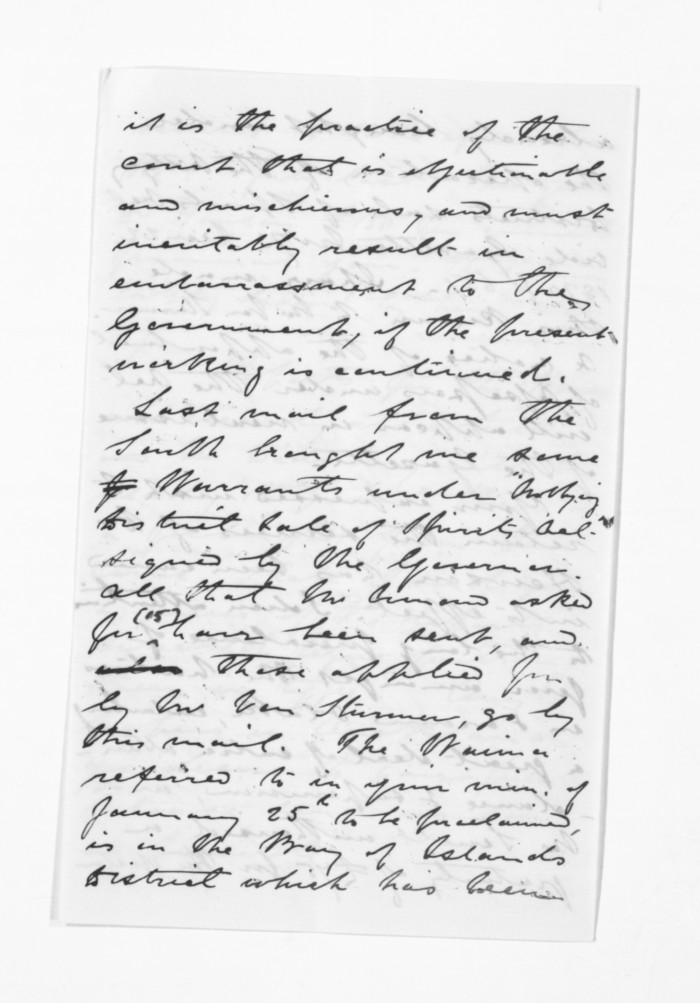 it is the practice of the
court that is objectionable
and mischievous, and must
inevitably result in
embarrassment to the
Government, if the present
working is continued.
Last mail from the
South brought me some
Warrants under "Outlying
District Sale of Spirits Act"
signed by the Governor.
All that Mr Inman asked
for (15) have been sent, and
those applied for
by Mr Von Sturmer, go by
this mail. The Waima
referred to in your min. of
January 25th to be proclaimed,
is in the Bay of Islands
District which has been